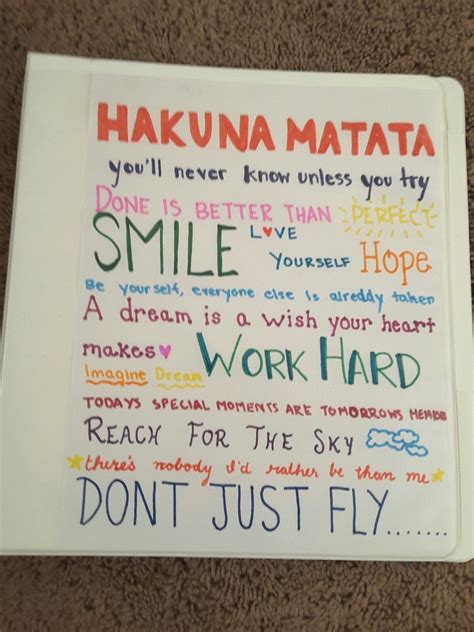 HAKUNA MATATA
you'll never know unless you try
DONE IS BETTER THAN PERFECT
SMILE LOVE YOURSELF Hope
Be yourself, everyone else is alreddy taken
A dream is a wish your heart
makes WORK HARD
Imagine Dream
TODAYS SPECIAL MOMENTS ARE TOMORROWS
REACH FOR THE SKY
there's nobody I'd rather be than me
DONT JUST FLY.......